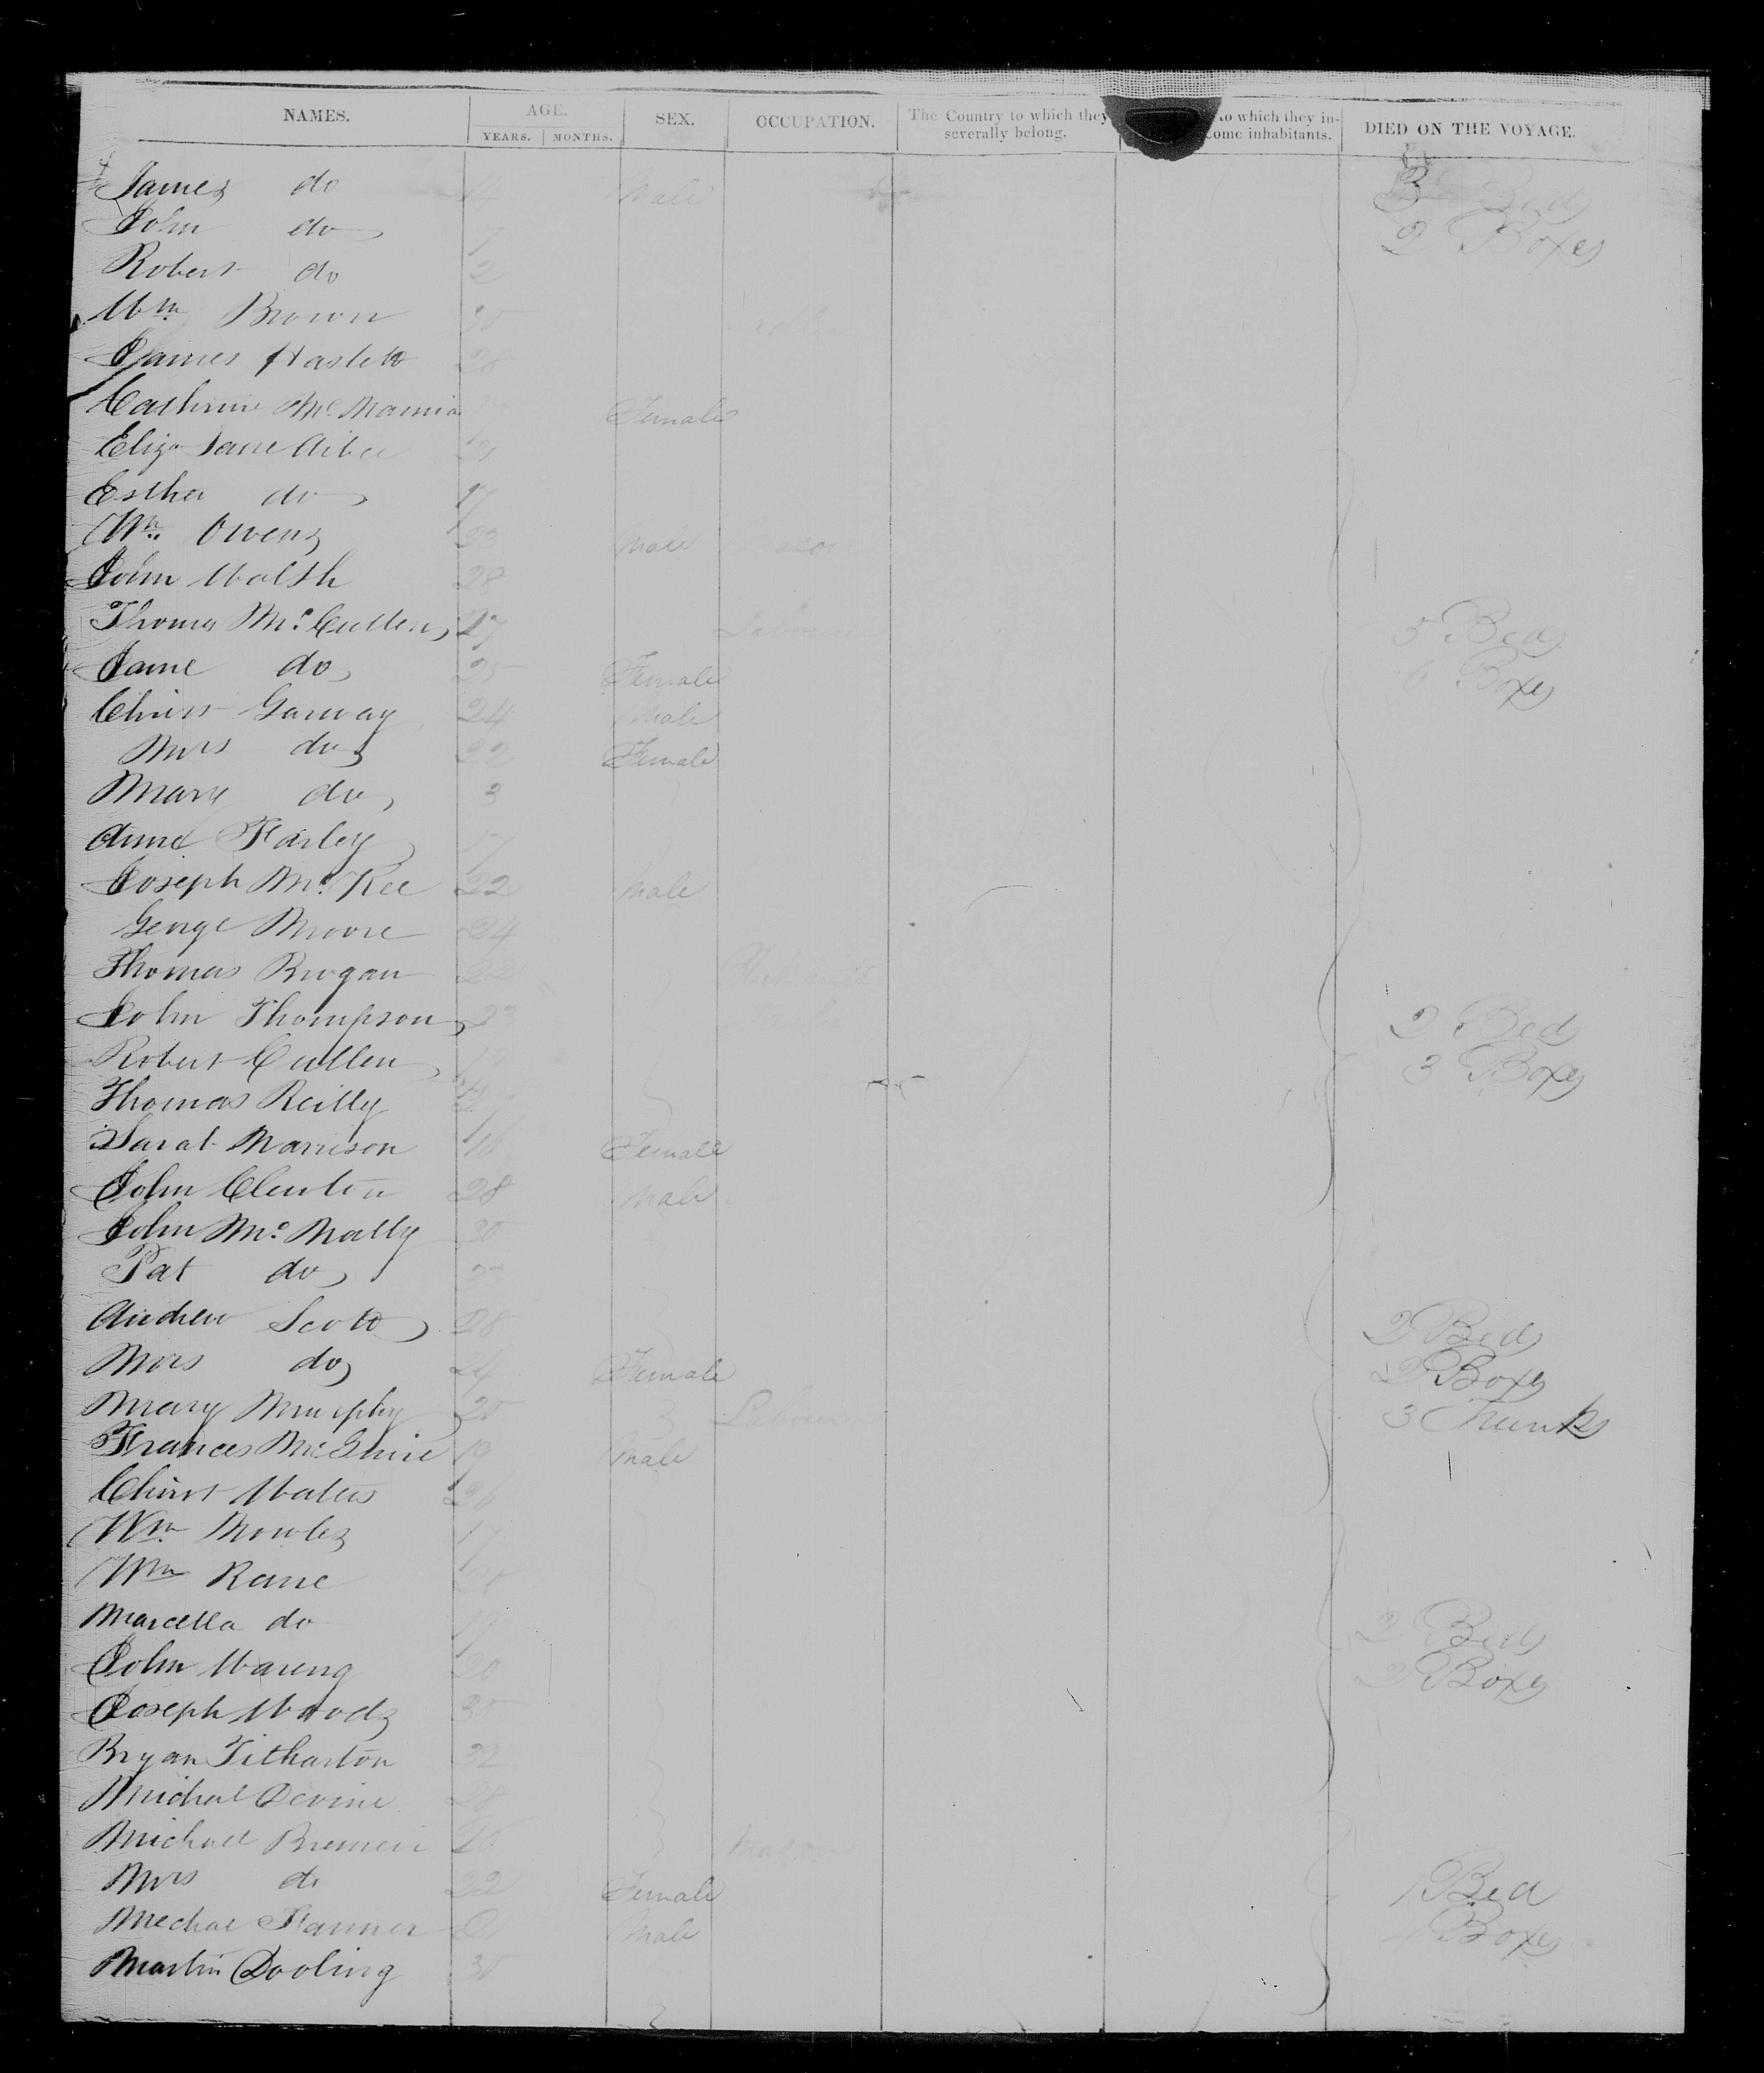 NAMES. AGE. SEX. OCCUPATION. The Country to which they severally belong. to which they in- come inhabitants. DIED ON THE VOYAGE.
YEARS. MONTHS.
James do 14 Male 3 Beds
John do 7 2 Boxes
Robert do 2
Wm Brown 30
James Haslett 28
Cathrine Mc Female
Eliza Jane
Esther do 17
Wm. Owens 23 Male Mason
John Walsh 28
Thomas Mc Cullen 27 Labourer 5 Beds
Jane do 25 Female 6 Boxes
Christ Garway 24 Male
Mrs do 22 Female
Mary do 3
Anne Farley 17
Joseph Mc Kee 22 Male
George Moore 24
Thomas Brogan 22
John Thompson 23 2 Bed
Robert Cullen 3 Boxes
Thomas Reilly
Sarah Marrison 18 Female
John Clenton 28 Male
John Mc Nally 30
Pat do
Andrew Scott 28 2 Beds
Mrs do 24 Female 2 Boxes
Mary Murphy 20 Labourer 3 Trunks
Frances McGuire 19 Male
Christ Waters 26
Wm Mowles 17
Wm Kane 28
Marcella do 2 Beds
John Wareng 20 2 Boxes
Joseph Woods 30
Bryan Titharton 32
Michal Devine 28
Michael Mason
Mrs do 22 Female 1 Bed
Mechae Male Boxes
Martin Dooling 30